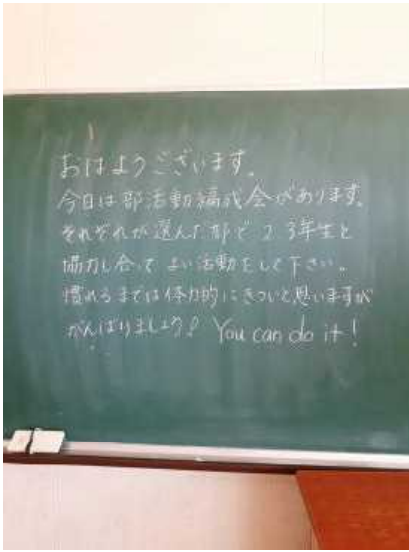 おはようございます。
今日は部活動編成会があります。
それぞれが選んだ部で2 3年生と
協力し合って よい活動をして下さい。
慣れるまでは体力的にきついと思いますが
がんばりましょう! You can do it!